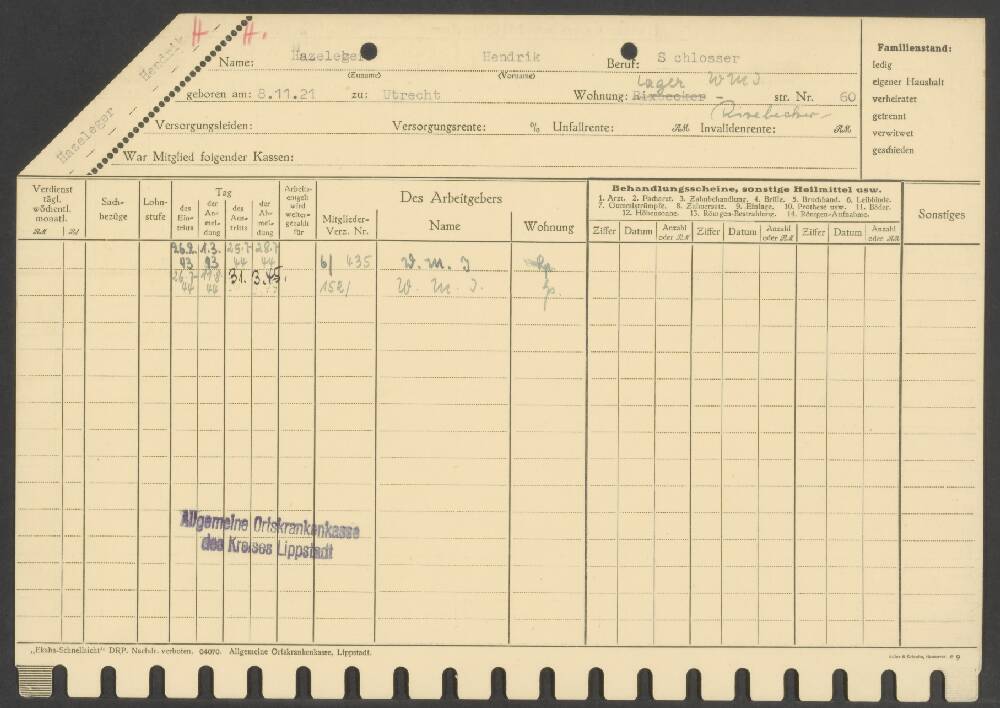 H H.
Hazeleger Hendrik
Name: Hazeleger Hendrik Beruf: Schlosser
(Zuname) (Vorname)
Lager W M I
geboren am: 8.11.21 zu: Utrecht Wohnung: Rixbecker - str. Nr. 60
Versorgungsleiden: Versorgungsrente: % Unfallrente: RM Invalidenrente: RM
War Mitglied folgender Kassen:
Familienstand:
ledig
eigener Haushalt
verheiratet
getrennt
verwitwet
geschieden
Verdienst
tägl.
wöchentl.
monatl.
RM Pf
Sach-
bezüge
Lohn-
stufe
Tag
des
Ein-
tritts
der
An-
mel-
dung
des
Aus-
tritts
der
Ab-
mel-
dung
Arbeits-
entgelt
wird
weiter-
gezahlt
für
Mitglieder-
Verz. Nr.
Des Arbeitgebers
Name Wohnung
Behandlungsscheine, sonstige Heilmittel usw.
1. Arzt. 2. Facharzt. 3. Zahnbehandlung. 4. Brille. 5. Bruchband. 6. Leibbinde.
7. Gummistrümpfe. 8. Zahnersatz. 9. Einlage. 10. Prothese usw. 11. Bäder.
12. Höhensonne. 13. Röntgen-Bestrahlung. 14. Röntgen-Aufnahme.
Ziffer Datum Anzahl oder RM Ziffer Datum Anzahl oder RM Ziffer Datum Anzahl oder RM
Sonstiges
26.2. 1.3. 25.7. 28.7.
43 43 44 44 6/ 435 W. M. I
26.7. 17.8. 31.3.45.
44 44 152/ W. M. I.
Allgemeine Ortskrankenkasse
des Kreises Lippstadt
„Ekaha-Schnellsicht“ DRP. Nachdr. verboten. 04070. Allgemeine Ortskrankenkasse, Lippstadt.